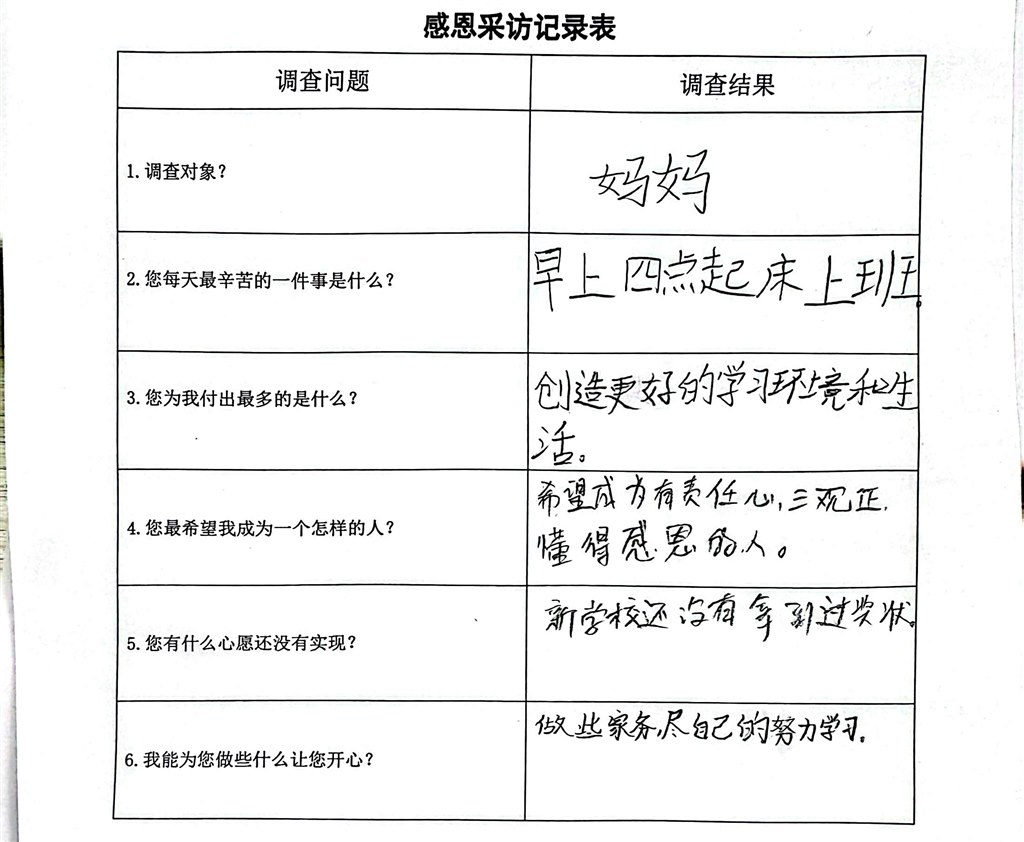 感恩采访记录表
调查问题
调查结果
1. 调查对象？
妈妈
2. 您每天最辛苦的一件事是什么？
早上四点起床上班。
3. 您为我付出最多的是什么？
创造更好的学习环境和生
活。
4. 您最希望我成为一个怎样的人？
希望成为有责任心,三观正,
懂得感恩的人。
5. 您有什么心愿还没有实现？
新学校还没有拿到过奖状。
6. 我能为您做些什么让您开心？
做些家务,尽自己的努力学习.